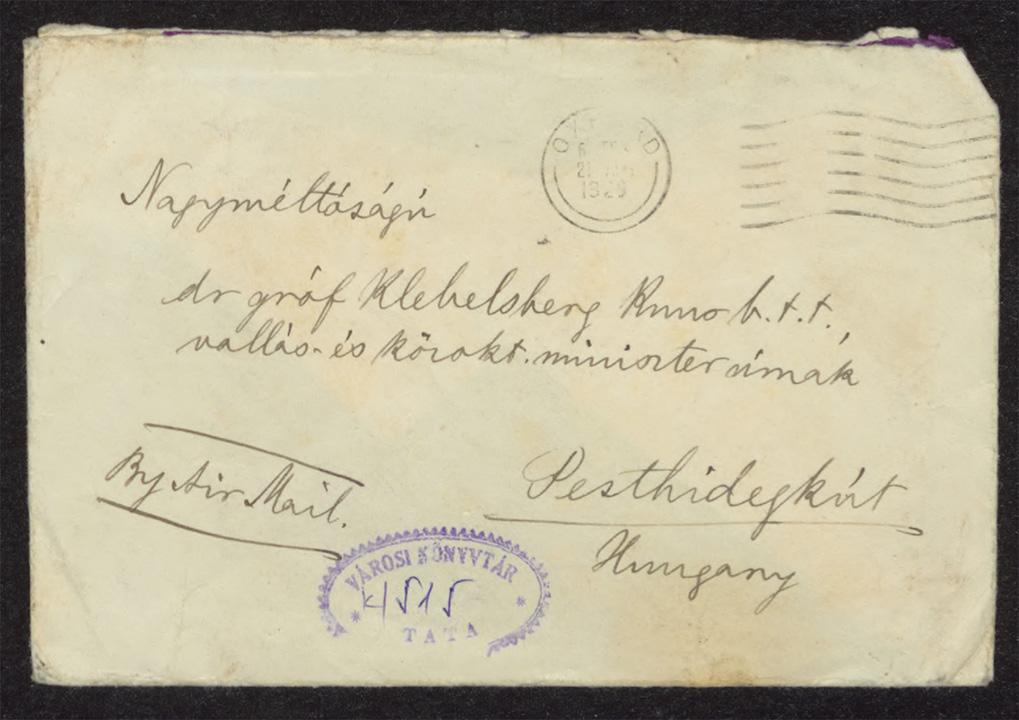 OXFORD
1929
Nagyméltóságú
dr gróf Klebelsberg Kuno b.t.t.,
vallás- és közokt. miniszter úrnak
By Air Mail.
Pesthidegkút
Hungary
VÁROSI KÖNYVTÁR
4515
TATA